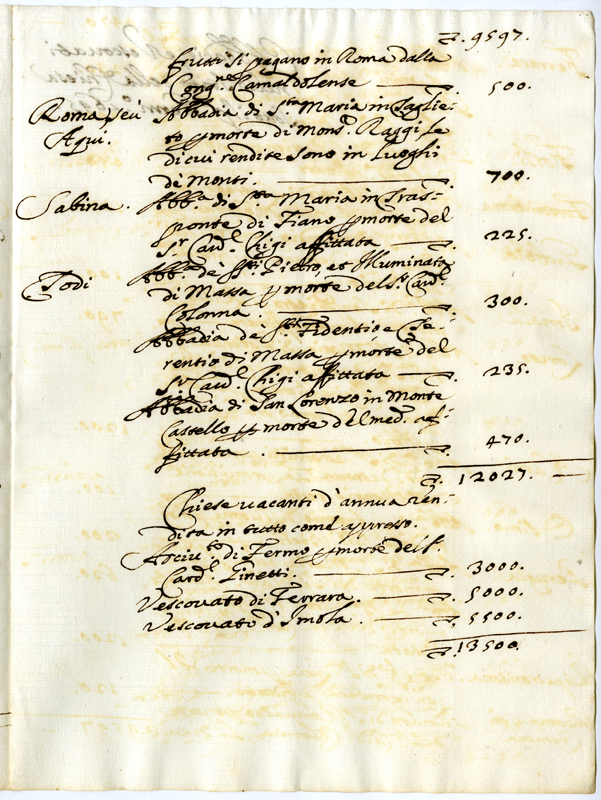 9597.
frutti si pagano in Roma dalla
Cong.ne Camaldolense — 500.
Roma, seu Abbadia di S.ta Maria in Saglie-
Aqui. to p morte di Mons.r Raggi le
di cui rendite sono in Luoghi
de Monti. — 700.
Sabina. Abb.a di S.ta Maria in Tras-
ponte di Fiano p morte del
S.r Card.l Chigi affittata — 225.
Todi Abb.a de S.ti Pietro, et Illuminata
di Massa p morte del S.r Card.l
Colonna. — 300.
Abbadia de S.ti Fidentio e Te-
rentio di Massa p morte del
S.r Card.l Chigi affittata — 235.
Abbadia di San Lorenzo in Monte
Castello p morte del med.o af-
fittata. — 470.
12027.
Chiese vacanti d'annua ren-
dita in tutto come appresso.
Arciv.to di Fermo p morte del S.
Card.l Ginetti. — 3000.
Vescovato di Ferrara. — 5000.
Vescovato d'Imola. — 5500.
13500.